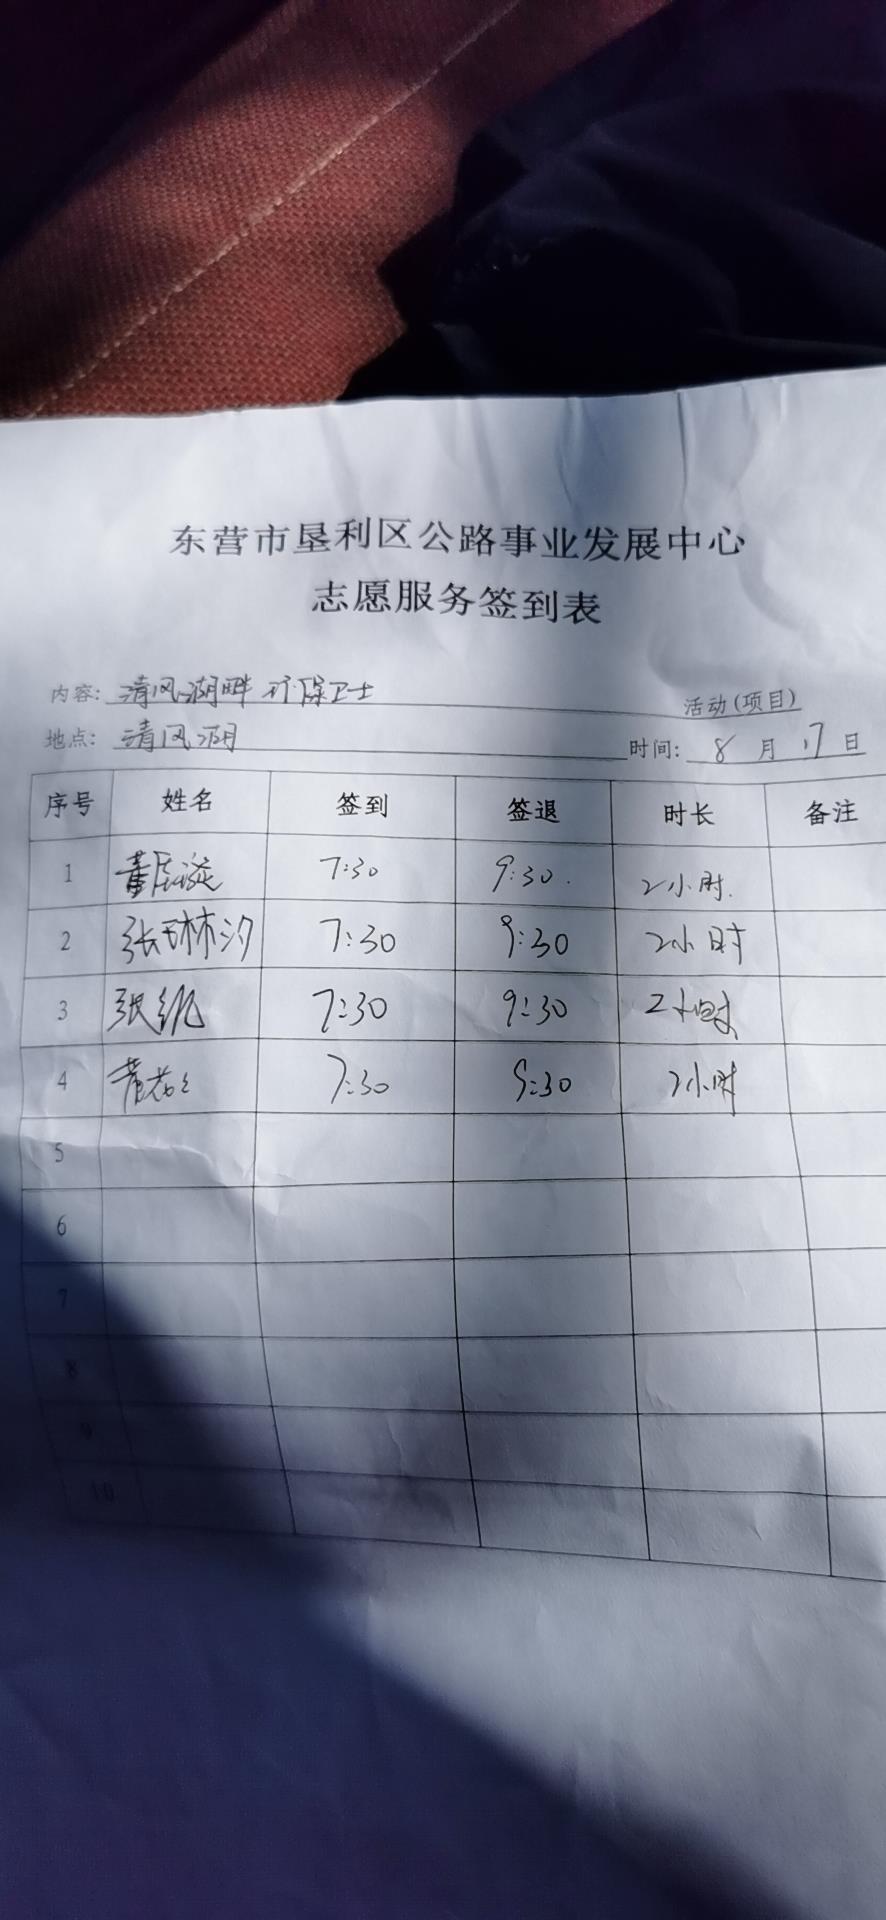 东营市垦利区公路事业发展中心
志愿服务签到表
内容: 清风湖畔 环保卫士 活动(项目)
地点: 清风湖 时间: 8 月 17 日
序号 姓名 签到 签退 时长 备注
1 董 7:30 9:30. 2小时.
2 张琳汐 7:30 9:30 2小时
3 张 7:30 9:30 2小时
4 7:30 9:30 2小时
5
6
7
8
9
10